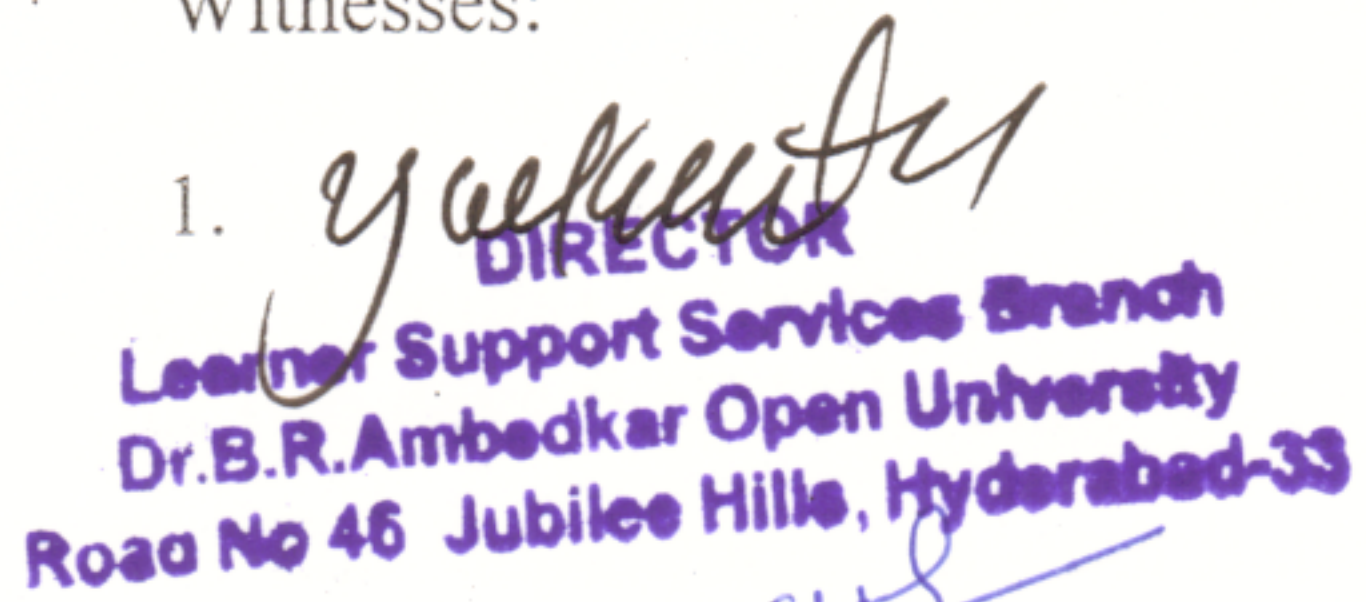 Witnesses:
1.
DIRECTOR
Learner Support Services Branch
Dr.B.R.Ambedkar Open University
Road No 46 Jubilee Hills, Hyderabad-33